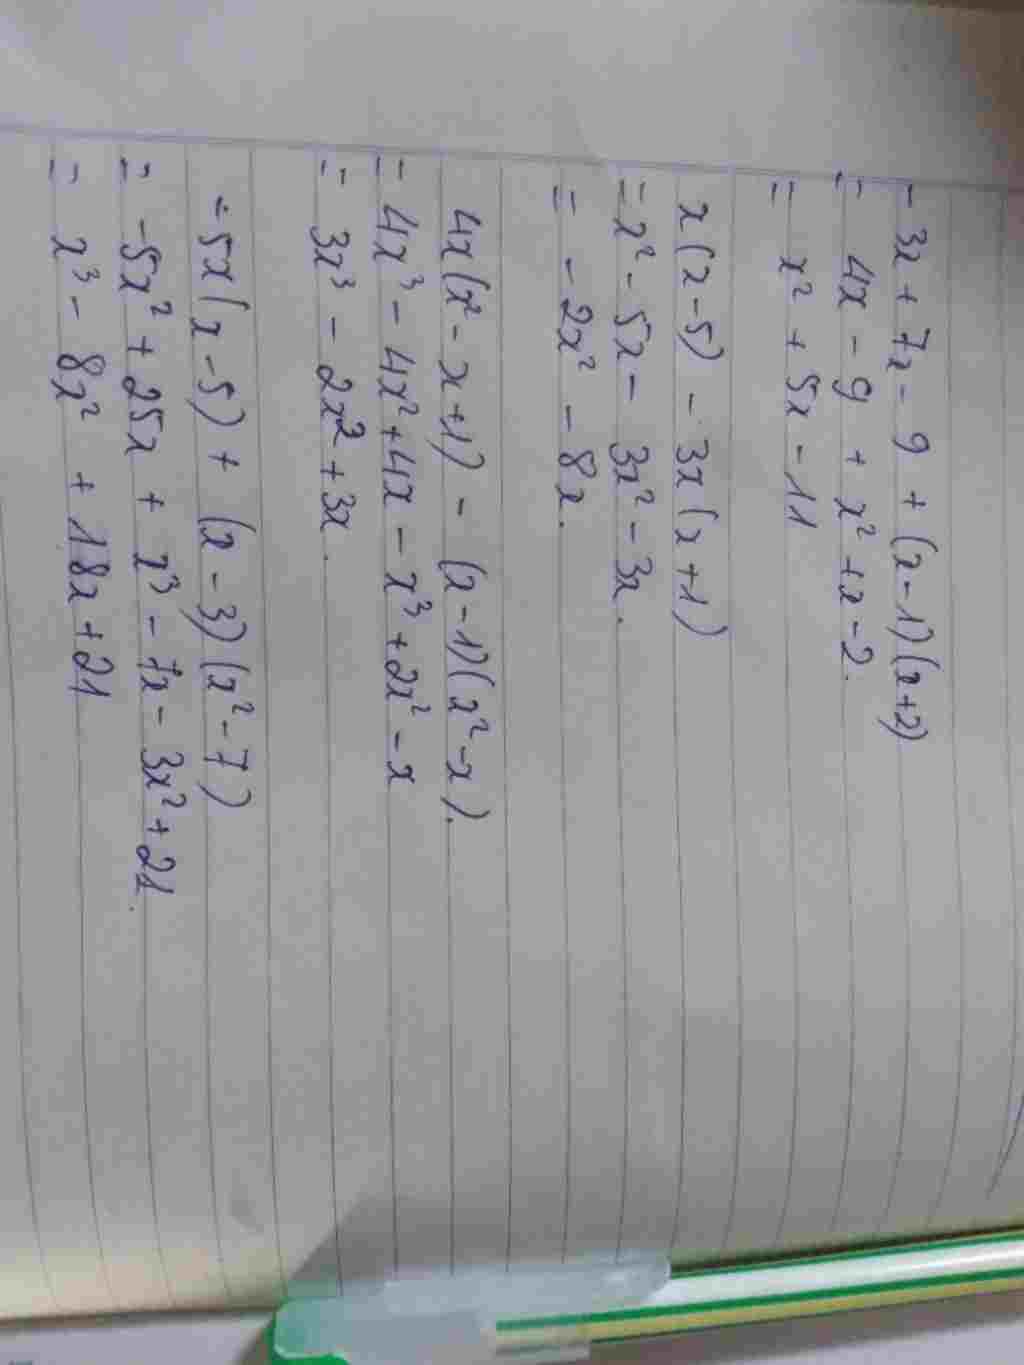 - 3x + 7x - 9 + (x - 1)(x + 2)
= 4x - 9 + x² + x - 2.
= x² + 5x - 11
x(x - 5) - 3x(x + 1)
= x² - 5x - 3x² - 3x.
= - 2x² - 8x.
4x(x² - x + 1) - (x - 1)(x² - x).
= 4x³ - 4x² + 4x - x³ + 2x² - x
= 3x³ - 2x² + 3x.
- 5x(x - 5) + (x - 3)(x² - 7)
= - 5x² + 25x + x³ - 7x - 3x² + 21.
= x³ - 8x² + 18x + 21